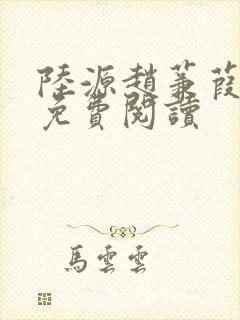 陸源趙蒹葭
免費閱讀
馬雲雲